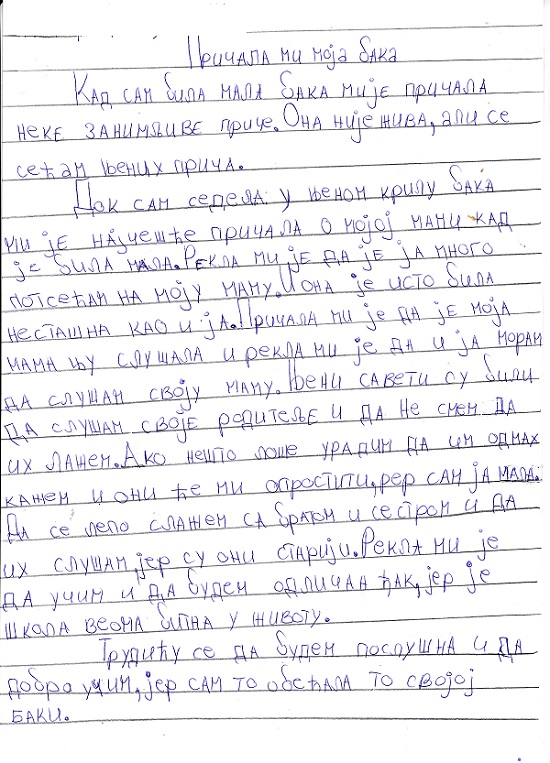 Причала ми моја бака
Кад сам била мала бака ми је причала
неке занимљиве приче. Она није жива, али се
сећам њених прича.
Док сам седела у њеном крилу бака
ми је најчешће причала о мојој мами кад
је била мала. Рекла ми је да је ја много
потсећам на моју маму. И она је исто била
несташна као и ја. Причала ми је да је моја
мама њу слушала и рекла ми је да и ја морам
да слушам своју маму. Њени савети су били
да слушам своје родитеље и да не смем да
их лажем. Ако нешто лоше урадим да им одмах
кажем и они ће ми опростити, јер сам ја мала.
Да се лепо слажем са братом и сестром и да
их слушам, јер су они старији. Рекла ми је
да учим и да будем одличан ђак, јер је
школа веома битна у животу.
Трудићу се да будем послушна и да
добро учим, јер сам то обећала то својој
баки.